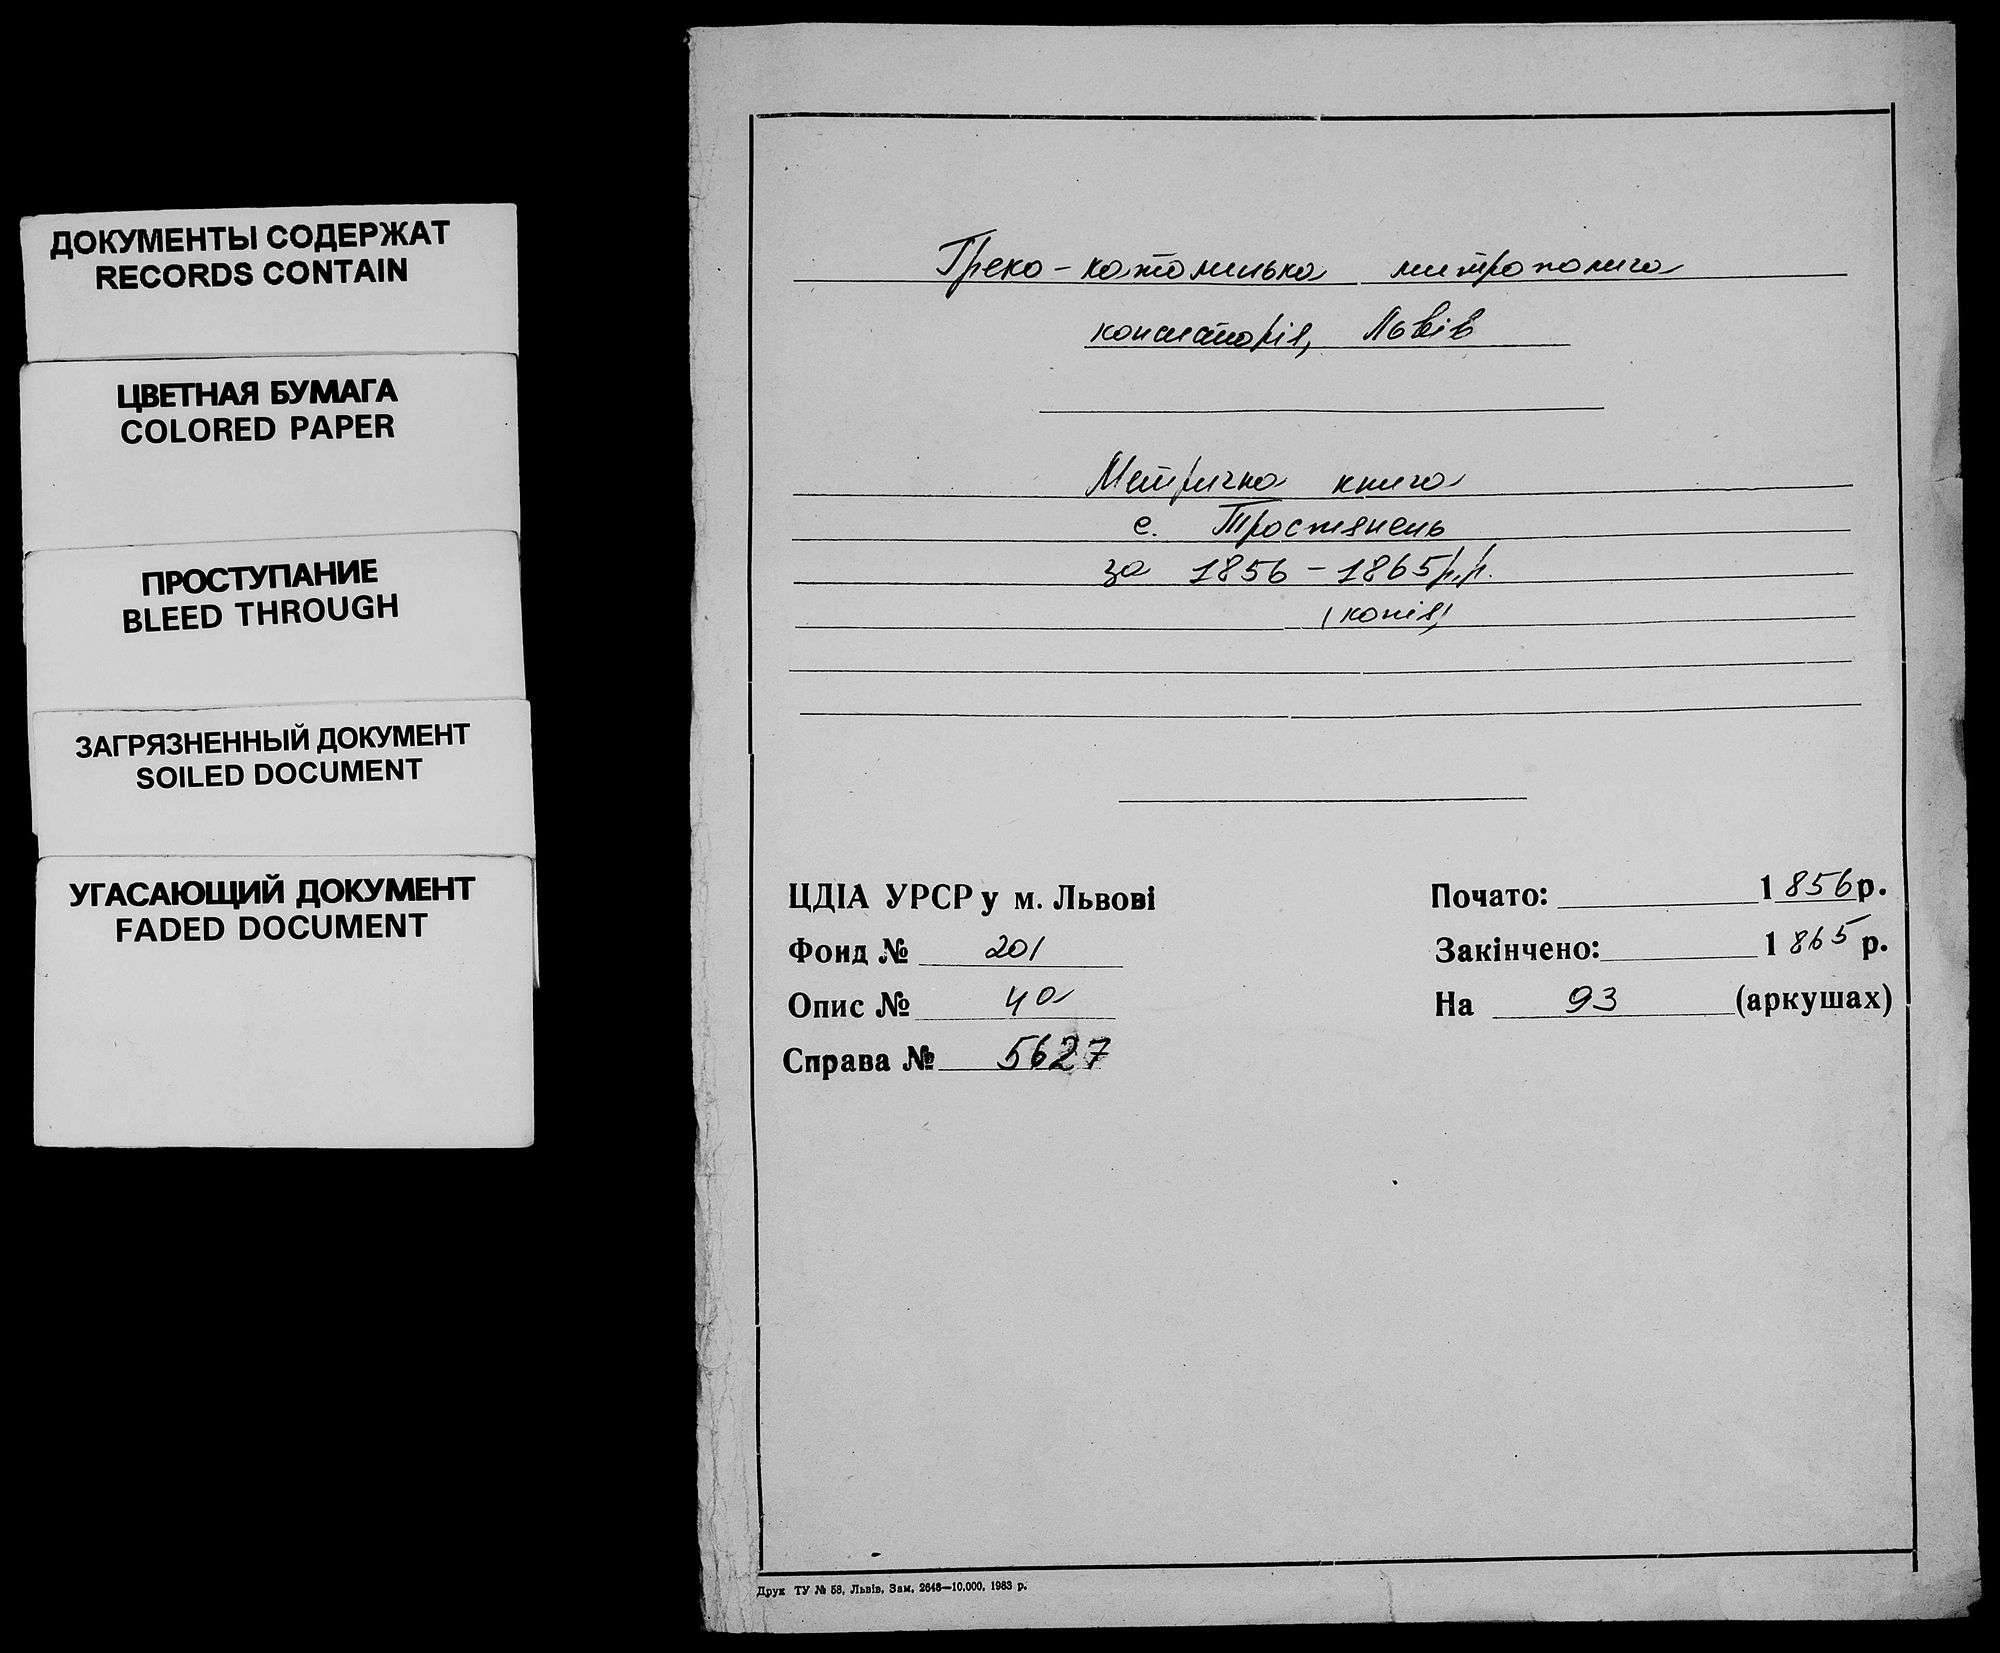 ДОКУМЕНТЫ СОДЕРЖАТ
RECORDS CONTAIN
ЦВЕТНАЯ БУМАГА
COLORED PAPER
ПРОСТУПАНИЕ
BLEED THROUGH
ЗАГРЯЗНЕННЫЙ ДОКУМЕНТ
SOILED DOCUMENT
УГАСАЮЩИЙ ДОКУМЕНТ
FADED DOCUMENT
Греко-католицька митрополича
консисторія, Львів
Метрична книга
с. Тростянець
за 1856-1865р.р.
(копія)
ЦДІА УРСР у м. Львові
Фонд № 201
Опис № 4а
Справа № 5627
Почато: 1856р.
Закінчено: 1865 р.
На 93 (аркушах)
Друк ТУ № 58, Львів, Зам. 2648—10.000. 1983 р.